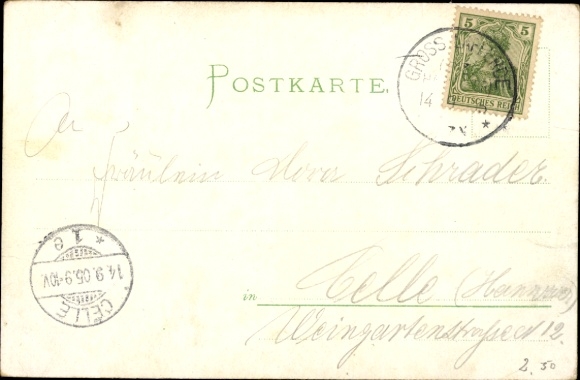 POSTKARTE.
5
DEUTSCHES REICH
GROSS
14
An
Fräulein Dora Schrader.
in Celle (Hannover)
Weingartenstraße 12.
CELLE
14.9.05.9-10V.
* 1 e
2.50